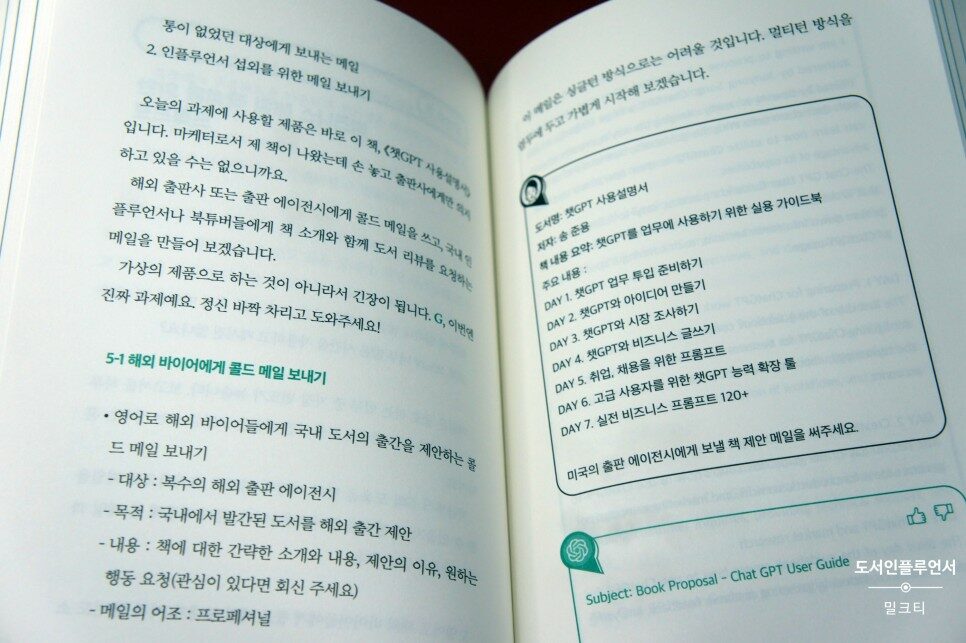 통이 없었던 대상에게 보내는 메일
2. 인플루언서 섭외를 위한 메일 보내기
오늘의 과제에 사용할 제품은 바로 이 책, 《챗GPT 사용설명서》
입니다. 마케터로서 제 책이 나왔는데 손 놓고 출판사에게만 의지
하고 있을 수는 없으니까요.
해외 출판사 또는 출판 에이전시에게 콜드 메일을 쓰고, 국내 인
플루언서나 북튜버들에게 책 소개와 함께 도서 리뷰를 요청하는
메일을 만들어 보겠습니다.
가상의 제품으로 하는 것이 아니라서 긴장이 됩니다. G, 이번엔
진짜 과제예요. 정신 바짝 차리고 도와주세요!
5-1 해외 바이어에게 콜드 메일 보내기
• 영어로 해외 바이어들에게 국내 도서의 출간을 제안하는 콜
드 메일 보내기
- 대상 : 복수의 해외 출판 에이전시
- 목적 : 국내에서 발간된 도서를 해외 출간 제안
- 내용 : 책에 대한 간략한 소개와 내용, 제안의 이유, 원하는
행동 요청(관심이 있다면 회신 주세요)
- 메일의 어조 : 프로페셔널
이 메일은 싱글턴 방식으로는 어려울 것입니다. 멀티턴 방식을
염두에 두고 가볍게 시작해 보겠습니다.
도서명: 챗GPT 사용설명서
저자: 송준용
책 내용 요약: 챗GPT를 업무에 사용하기 위한 실용 가이드북
주요 내용 :
DAY 1. 챗GPT 업무 투입 준비하기
DAY 2. 챗GPT와 아이디어 만들기
DAY 3. 챗GPT와 시장 조사하기
DAY 4. 챗GPT와 비즈니스 글쓰기
DAY 5. 취업, 채용을 위한 프롬프트
DAY 6. 고급 사용자를 위한 챗GPT 능력 확장 툴
DAY 7. 실전 비즈니스 프롬프트 120+
미국의 출판 에이전시에게 보낼 책 제안 메일을 써주세요.
Subject: Book Proposal - Chat GPT User Guide
도서인플루언서
밀크티